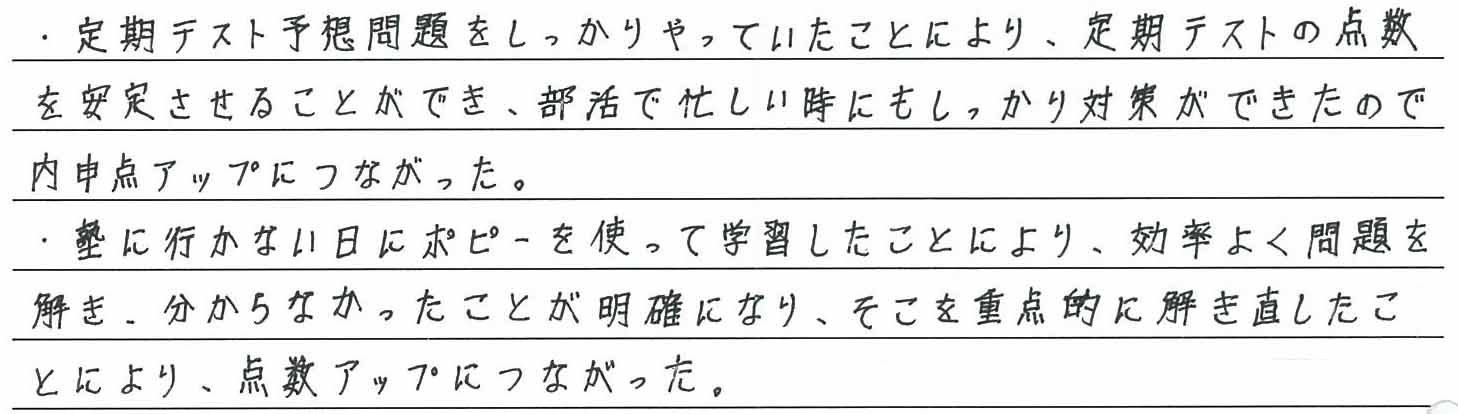 ・定期テスト予想問題をしっかりやっていたことにより、定期テストの点数
を安定させることができ、部活で忙しい時にもしっかり対策ができたので
内申点アップにつながった。
・塾に行かない日にポピーを使って学習したことにより、効率よく問題を
解き、分からなかったことが明確になり、そこを重点的に解き直したこ
とにより、点数アップにつながった。